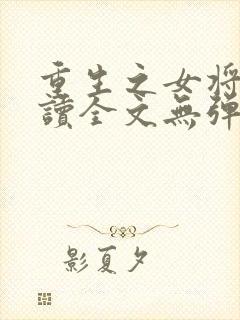 重生之女将
讀全文無彈
影夏夕